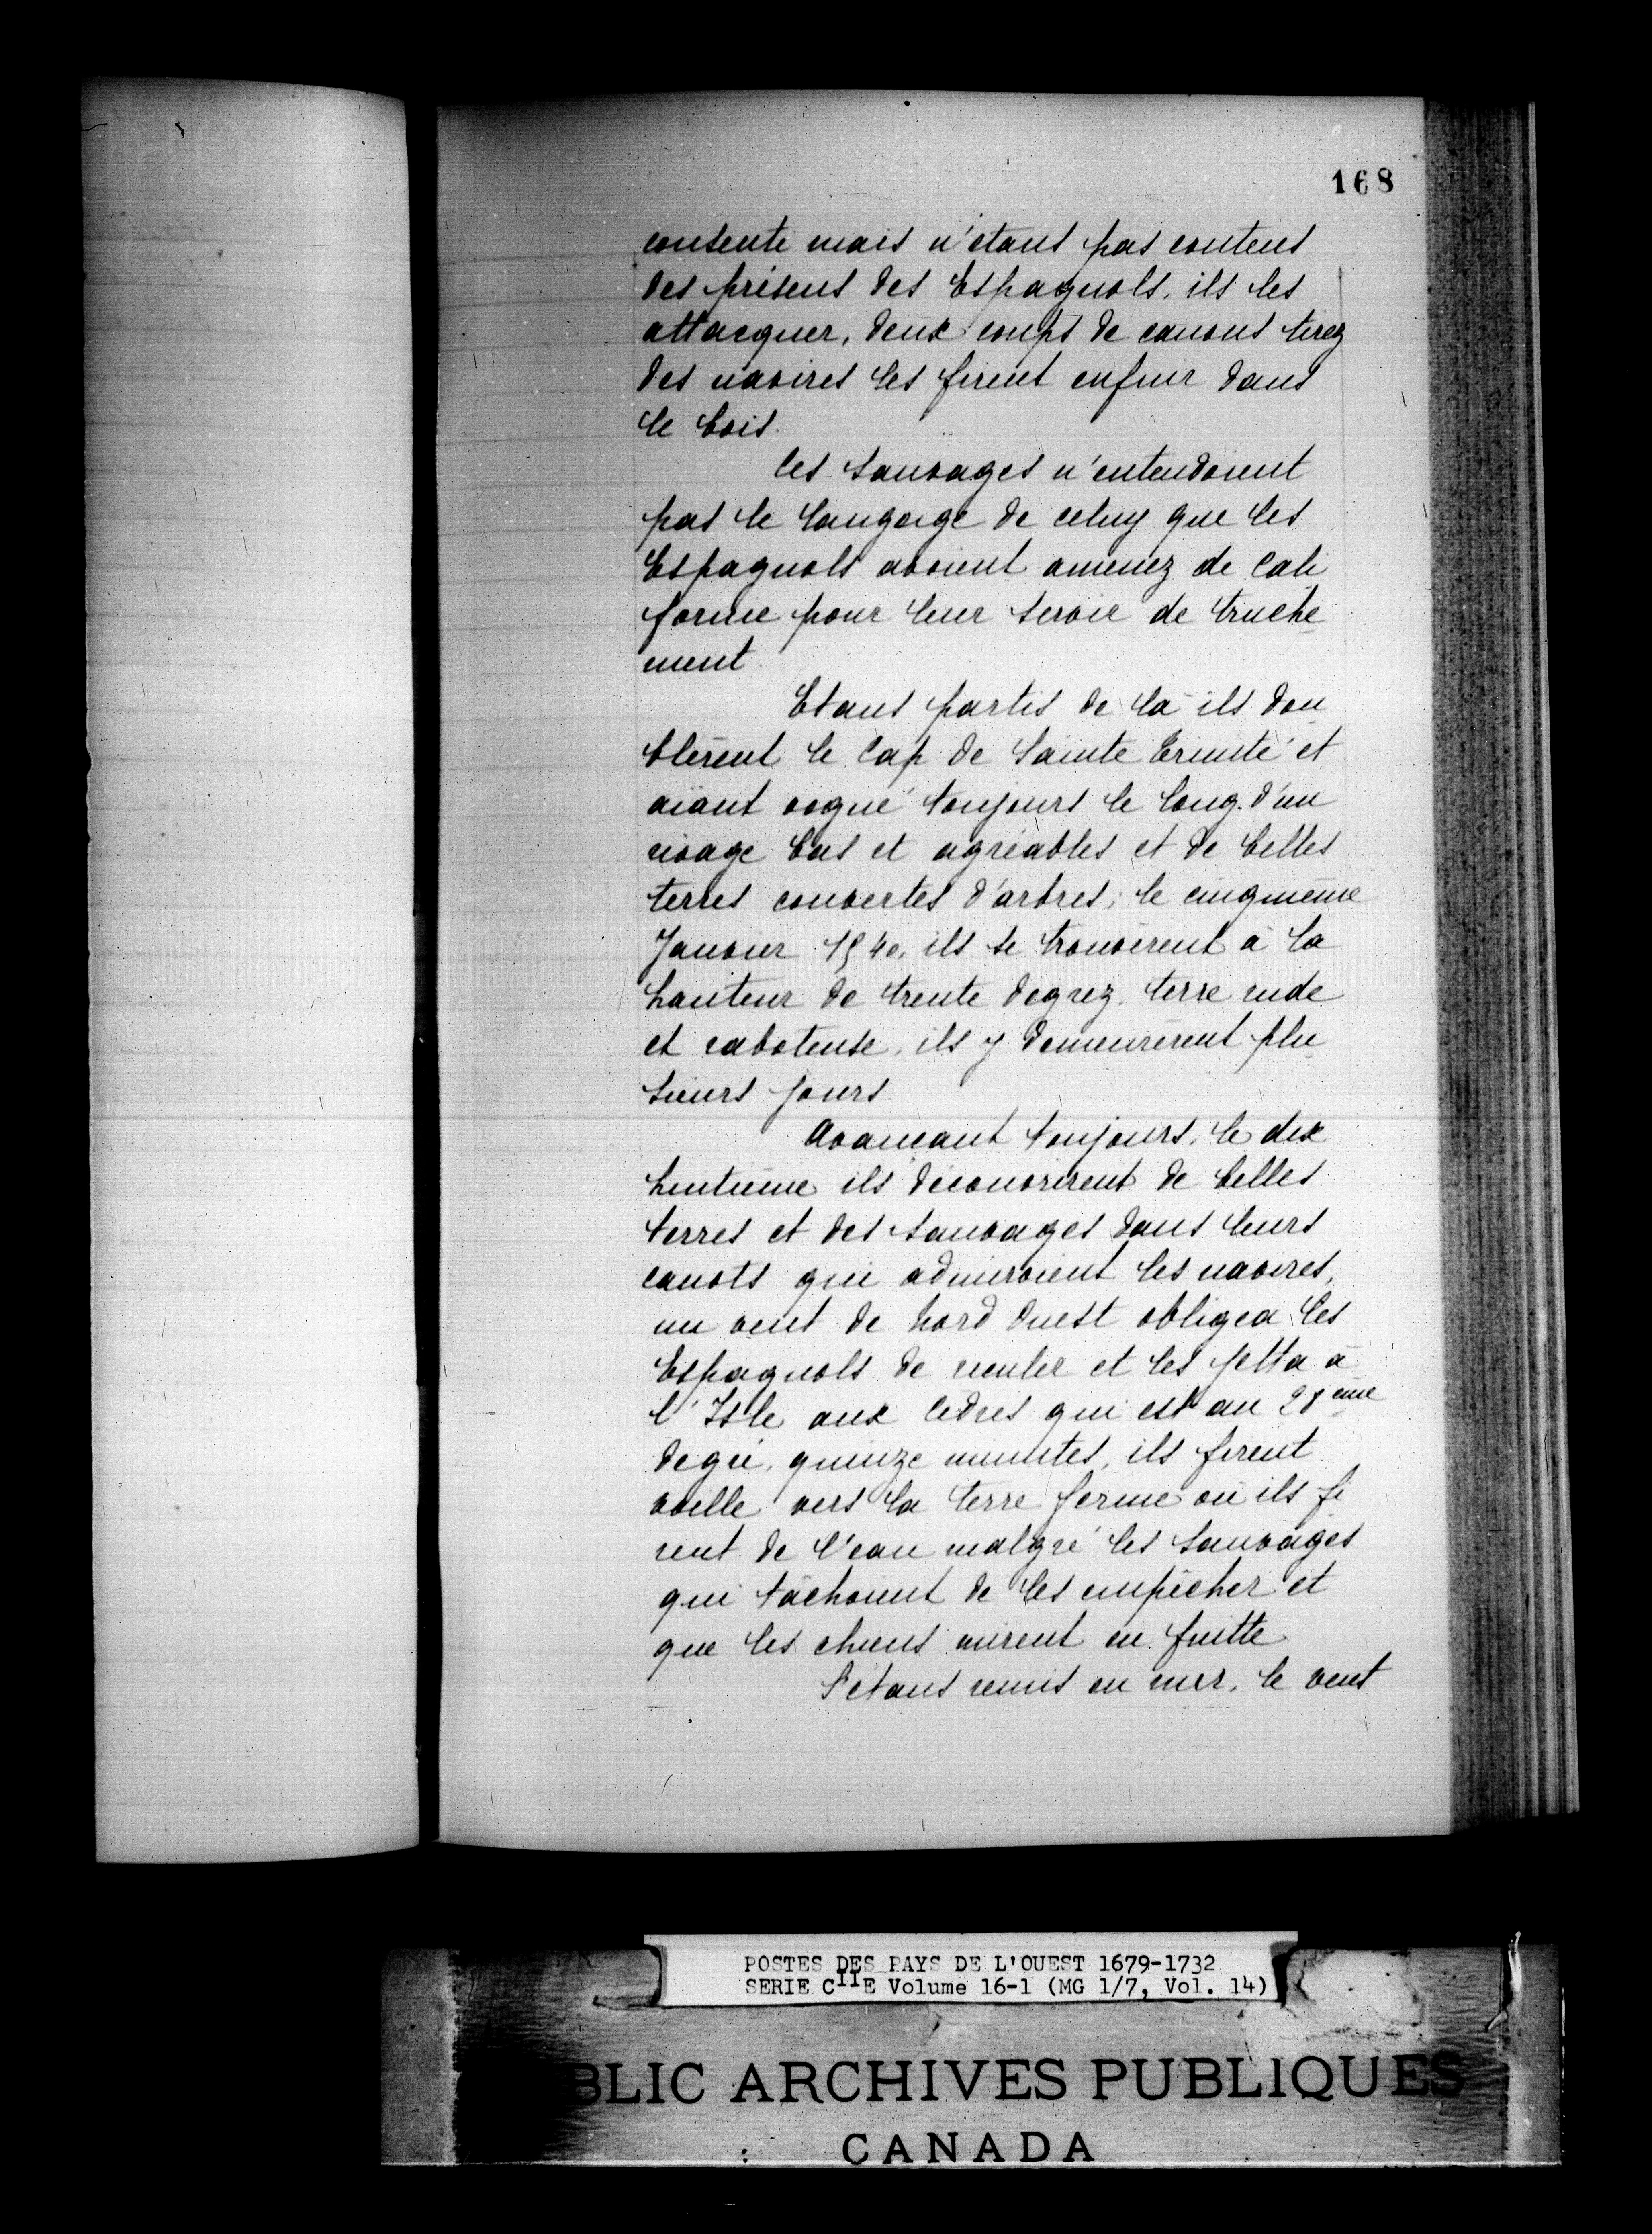 168
consenti mais n'étans pas contens
des présens des Espagnols, ils les
attacquer, deux coups de canons tirez
des navires les firent enfuir dans
le bois.
Ces sauvages n'entendoient
pas le langage de celuy que les
Espagnols avoient amenez de Cali
fornie pour leur servir de truche
ment.
Etans partis de là ils dou
blèrent le Cap de Sainte Trinité et
aïant vogué toujours le long d'un
rivage bas et agréables et de belles
terres couvertes d'arbres; le cinqmême
Janvier 1540, ils se trouvèrent à la
hauteur de trente degrez, terre rude
et raboteuse, ils y demeurèrent plu
sieurs jours.
Avancant toujours, le dix
huitième ils découvrirent de belles
terres et des sauvages dans leurs
canots qui admiroient les navires,
un vent de Nord Ouest obligea les
Espagnols de reculer et les jetta à
l'Isle aux Cèdres qui est au 28eme
degré, quinze minutes, ils firent
voille vers la terre ferme où ils fi
rent de l'eau malgré les sauvages
qui tâchoient de les empêcher et
que les chiens mirent en fuitte
S'étans remis en mer, le vent
POSTES DES PAYS DE L'OUEST 1679-1732
SERIE CIIE Volume 16-1 (MG 1/7, Vol. 14)
BLIC ARCHIVES PUBLIQUES
CANADA